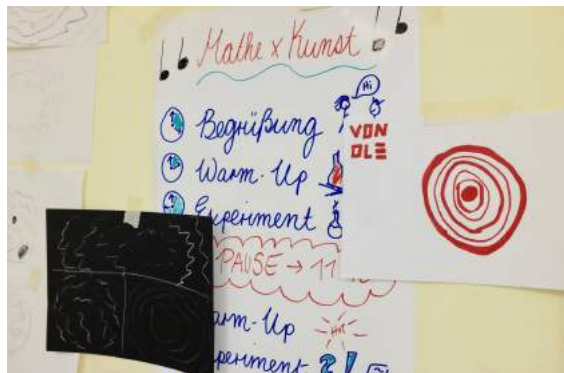 Mathe x Kunst
Hi
Begrüßung
VON
OLE
Warm-Up
Experiment
PAUSE → 11
arm-Up
periment 2!